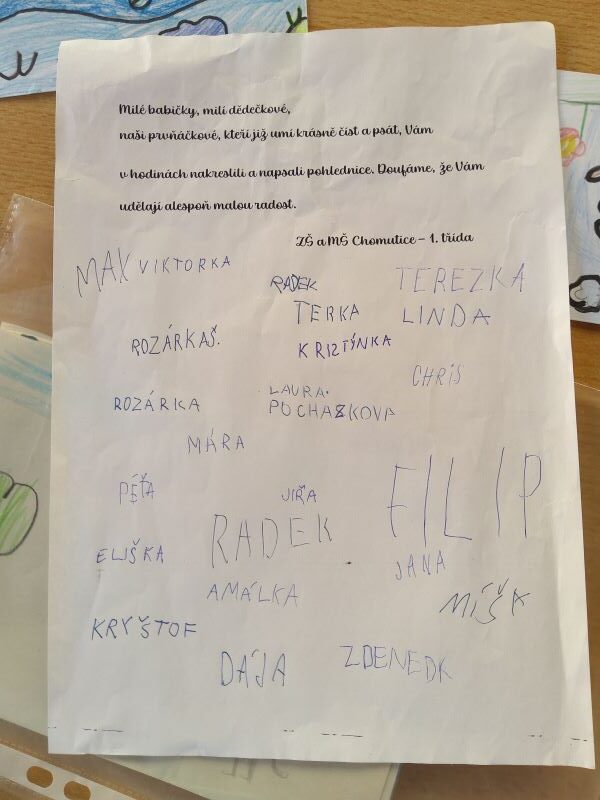 Milé babičky, milí dědečkové,
naši prvňáčkové, kteří již umí krásně číst a psát, Vám
v hodinách nakreslili a napsali pohlednice. Doufáme, že Vám
udělají alespoň malou radost.
ZŠ a MŠ Chomutice – 1. třída
MAX VIKTORKA
RADEK
TEREZKA
TERKA
LINDA
ROZÁRKAŠ.
KRIZTÝNKA
CHRIS
ROZÁRKA
LAURA.
POCHAZKOVA
MÁRA
PÉŤA
JIŘA
FILIP
RADEK
ELIŠKA
JANA
AMÁLKA
MÍŠA
KRYŠTOF
DÁJA
ZDENEDK